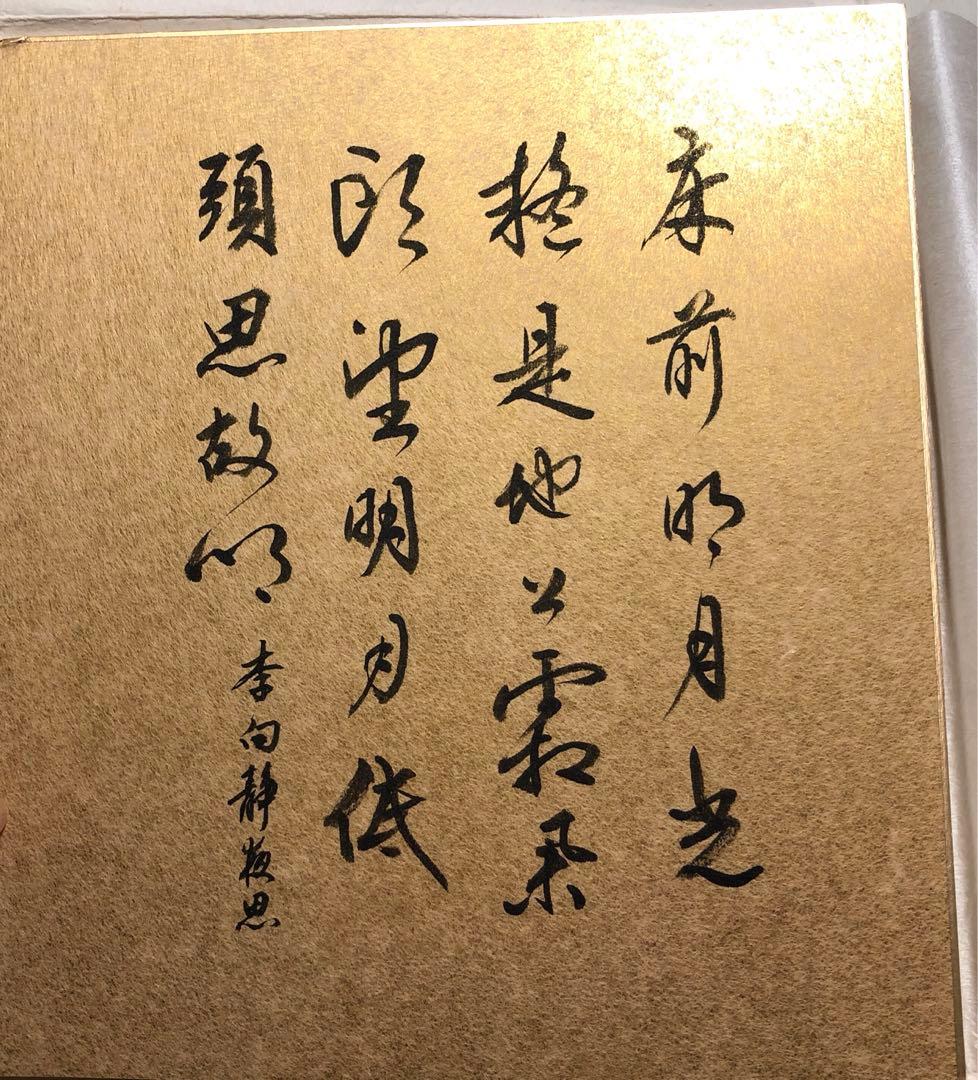 床前明月光
疑是地上霜舉
頭望明月低
頭思故鄉 李白靜夜思